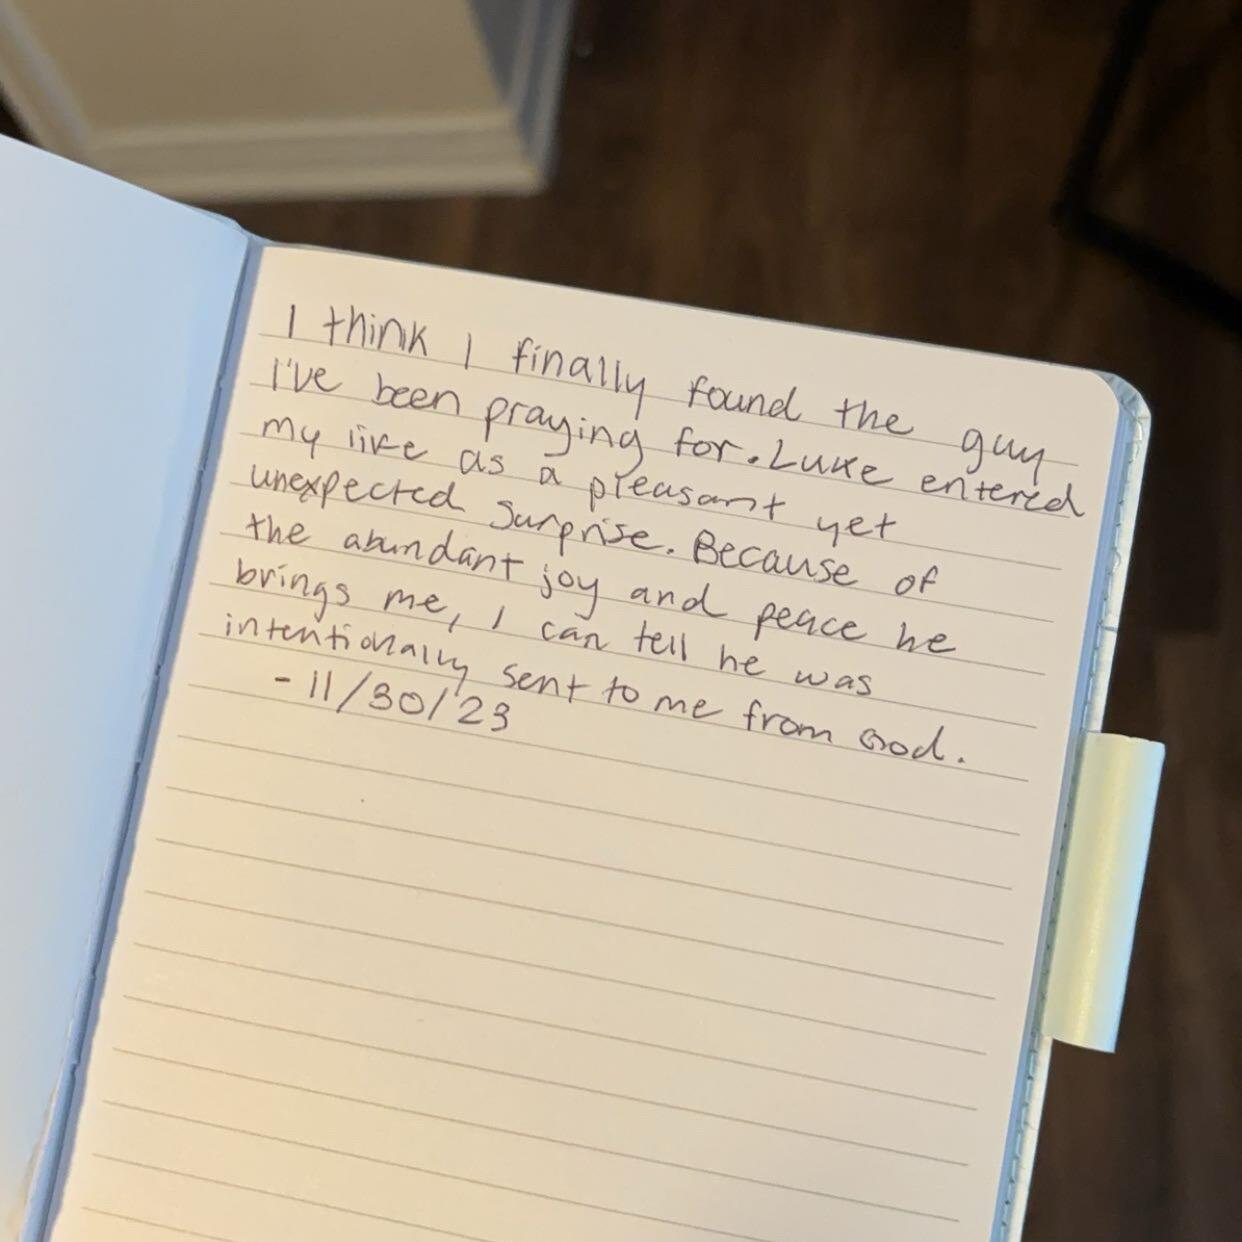 I think I finally found the guy
I've been praying for. Luke entered
my life as a pleasant yet
unexpected surprise. Because of
the abundant joy and peace he
brings me, I can tell he was
intentionally sent to me from God.
- 11/30/23